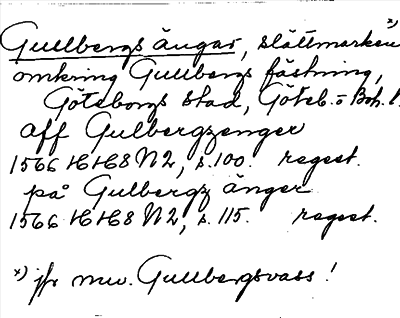 Gullbergs ängar, slåttmarken x)
omkring Gullbergs fästning,
Göteborgs stad, Göteb. o Boh. l.
aff Gulbergzenger
1566 HH8 N2, s. 100. regest.
på Gulbergz änger
1566 HH8 N2, s. 115. regest.
x) jfr nuv. Gullbergsvass!